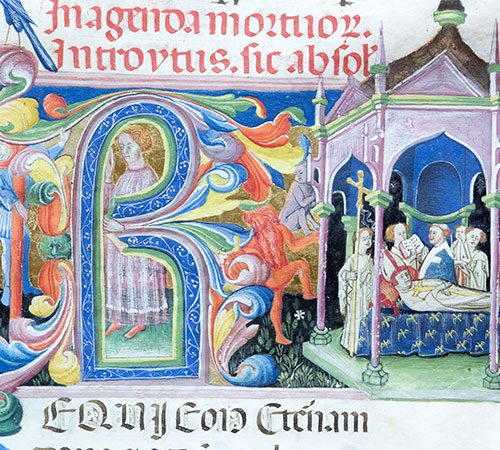 In agenda mortuor.
Introytus. sic absol
REQUIEM Eternam